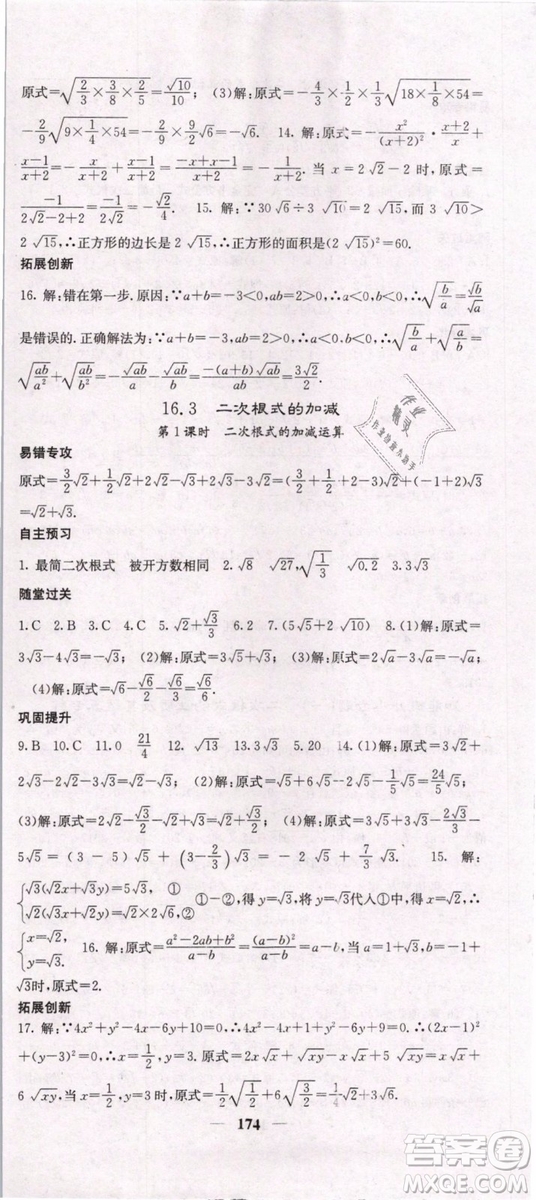 原式=√(2/3×3/8×2/5)=√10/10; (3)解:原式=-4/3×1/2√(18×1/8×54)=
-2/9√(9×1/4×54)=-2/9×9/2√6=-√6. 14.解:原式=-x²/(x+2)²·(x+2)/x+
(x-1)/(x+2)=-x/(x+2)+(x-1)/(x+2)=(-x+x-1)/(x+2)=-1/(x+2).当 x=2√2-2时,原式=
-1/(2√2-2+2)=-1/(2√2)=-√2/4. 15.解:∵30√6÷3√10=2√15,而3√10>
2√15,∴正方形的边长是2√15,∴正方形的面积是(2√15)²=60.
拓展创新
16.解:错在第一步.原因:∵a+b=-3<0,ab>0,∴a<0,b<0,∴√(b/a)=√b/√a
是错误的.正确解法为:∵a+b=-3,ab=2>0,∴a<0,b<0,∴√(b/a)+√(a/b)
=√(ab/a²)+√(ab/b²)=-√ab/a-√ab/b=-(a+b)√ab/ab=3√2/2.
16.3 二次根式的加减
第1课时 二次根式的加减运算
易错专攻
原式=3/2√2+1/2√2-√3+2√2+2√3-3√2=(3/2+1/2+2-3)√2+(-1+2)√3
=√2+√3.
自主预习
1.最简二次根式 被开方数相同 2.√8 √27,√(1/3) √0.2 3.3√3
随堂过关
1.C 2.B 3.C 4.C 5.√2+√3/3 6.2 7.(5√2+2√10) 8.(1)解:原式=
3√3-4√3=-√3; (2)解:原式=3√2-2√2=√2; (3)解:原式=2√a-3√a=-√a;
(4)解:原式=√6-√6/2-√6/3=√6/6.
巩固提升
9.B 10.C 11.0 21/4 12.√13 13.3√2 5.20 14.(1)解:原式=3√2+
2√3-2√2-3√3=√2-√3; (2)解:原式=√5+6√5-2√5-1/5√5=24/5√5;
(3)解:原式=2√2+√3/3-√2/2-√2+√3=√2/2+4√3/3; (4)解:原式=3√5+3√3-2√3/3-
5√5=(3-5)√5+(3-2/3)√3=-2√5+7/3√3. 15.解:
√3(√2x-√3y)=√3, ①
√2(√3x-√2y)=√2 ②
①-②,得y=√3,将y=√3代入①中,得x=√2,∴
x=√2,
y=√3. 16.解:原式=(a²-2ab+b²)/(a-b)=(a-b)²/(a-b)=a-b,当a=√3+1,b=-1+
√3时,原式=2.
拓展创新
17.解:∵4x²+y²-4x-6y+10=0,∴4x²-4x+1+y²-6y+9=0.∴(2x-1)²
+(y-3)²=0.∴x=1/2,y=3.原式=2x√x+√xy-x√x+5√xy=x√x+
6√xy.当x=1/2,y=3时,原式=1/2√(1/2)+6√(3/2)=√2/4+3√6.
174
答案圈
MXQE.COM